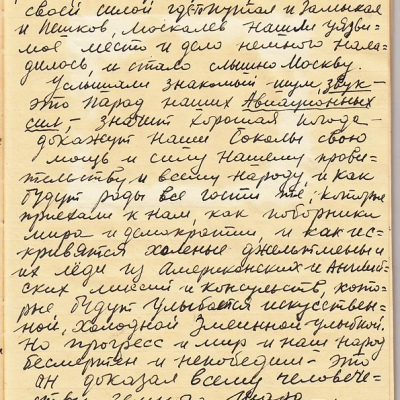 своей силой где-то путая и замыкая
и Пешков, Москалев нашли уязви=
мое место и дело немного нала=
дилось, и стало слышно Москву.
Услышали знакомый шум, звук –
это парад наших Авиационных
сил, – значит хорошая погода –
докажут наши Соколы свою
мощь и силу нашему прави=
тельству и всему народу, и как
будут рады все гости те, которые
приехали к нам, как поборники
мира и демократии, и как ис=
кривятся холеные джельтмены и
их лёди из Американских и Англий=
ских миссий и консульств, кото=
рые будут улыбаться искусствен=
ной, холодной змеинной улыбкой.
Но прогресс и мир и наш народ
бессмертен и непобедим – это
он доказал всему человече=